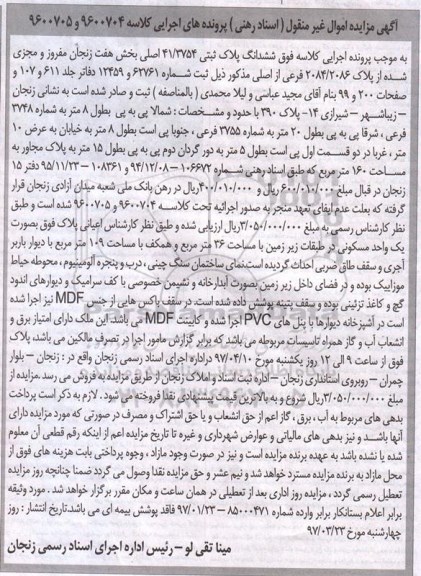 آگهی مزایده اموال غیر منقول ( اسناد رهنی ) پرونده های اجرایی کلاسه ۹۶۰۰۷۰۴ و ۹۶۰۰۷۰۵
به موجب پرونده اجرایی کلاسه فوق ششدانگ پلاک ثبتی ۴۱/۳۷۵۴ اصلی بخش هفت زنجان مفروز و مجزی
شده از پلاک ۲۰۸۴/۲۰۸۶ فرعی از اصلی مذکور ذیل ثبت شماره ۶۲۷۶۱ و ۱۲۴۵۹ دفاتر جلد ۶۱۱ و ۱۰۷ و
صفحات ۲۰۰ و ۹۹ بنام آقای مجید عباسی و لیلا محمدی ( بالمناصفه ) ثبت و صادر شده است به نشانی زنجان
– زیباشهر – شیرازی ۱۴- پلاک ۳۹۰ با حدود و مشخصات : شمالا پی به پی بطول ۸ متر به شماره ۳۷۴۸
فرعی ، شرقا پی به پی بطول ۲۰ متر به شماره ۳۷۵۵ فرعی ، جنوبا پی است بطول ۸ متر به خیابان به عرض ۱۰
متر ، غربا در دو قسمت اول پی است بطول ۵ متر به دور گردان دوم پی به پی بطول ۱۵ متر به پلاک مجاور به
مساحت ۱۶۰ متر مربع که طبق اسناد رهنی شماره ۱۰۶۶۷۲ – ۹۴/۱۲/۰۸ و ۱۰۸۳۶۱ – ۹۵/۱۱/۲۳ دفتر ۱۵
زنجان در قبال مبلغ ۶۰۰/۰۱۰/۰۰۰ ریال و ۴۰۰/۰۱۰/۰۰۰ ریال در رهن بانک ملی شعبه میدان آزادی زنجان قرار
گرفته که بعلت عدم ایفای تعهد منجر به صدور اجرائیه تحت کلاسه ۹۶۰۰۷۰۴ و ۹۶۰۰۷۰۵ شده است و طبق
نظر کارشناس رسمی به مبلغ ۳/۰۵۰/۰۰۰/۰۰۰ ریال ارزیابی شده و طبق نظر کارشناس اعیانی پلاک فوق بصورت
یک واحد مسکونی در طبقات زیر زمین با مساحت ۳۶ متر مربع و همکف با مساحت ۱۰۹ متر مربع با دیوار باربر
آجری و سقف طاق ضربی احداث گردیده است نمای ساختمان سنگ چینی ، درب و پنجره آلومینیوم ، محوطه حیاط
موزاییک بوده و در فضای داخل زیر زمین بصورت آبدارخانه و نشیمن خصوصی با کف سرامیک و دیوارهای اندود
گچ و کاغذ تزئینی بوده و سقف پتینه پوشش داده شده است. در سقف باکس هایی از جنس MDF نیز اجرا شده
است در آشپزخانه دیوارها با پنل های PVC اجرا شده و کابینت MDF می باشد. این ملک دارای امتیاز برق و
انشعاب آب و گاز همراه تاسیسات مربوطه می باشد که برابر گزارش مامور اجرا در تصرف مالکین می باشد. پلاک
فوق از ساعت ۹ الی ۱۲ روز یکشنبه مورخ ۹۷/۰۴/۱۰ در اداره اجرای اسناد رسمی زنجان واقع در : زنجان – بلوار
چمران – روبروی استانداری زنجان – اداره ثبت اسناد و املاک زنجان از طریق مزایده به فروش می رسد .مزایده از
مبلغ ۳/۰۵۰/۰۰۰/۰۰۰ ریال شروع و به بالاترین قیمت پیشنهادی نقدا فروخته می شود . لازم به ذکر است پرداخت
بدهی های مربوط به آب ، برق ، گاز اعم از حق انشعاب و یا حق اشتراک و مصرف در صورتی که مورد مزایده دارای
آنها باشد و نیز بدهی های مالیاتی و عوارض شهرداری و غیره تا تاریخ مزایده اعم از اینکه رقم قطعی آن معلوم
شده یا نشده باشد به عهده برنده مزایده است و نیز در صورت وجود مازاد ، وجوه پرداختی بابت هزینه های فوق از
محل مازاد به برنده مزایده مسترد خواهد شد و نیم عشر و حق مزایده نقدا وصول می گردد ضمنا چنانچه روز مزایده
تعطیل رسمی گردد ، مزایده روز اداری بعد از تعطیلی در همان ساعت و مکان مقرر برگزار خواهد شد . مورد وثیقه
برابر اعلام بستانکار برابر وارده شماره ۸۵۰۰۰۴۷۱ – ۹۷/۰۱/۲۳ فاقد پوشش بیمه ای می باشد.تاریخ انتشار : روز
چهارشنبه مورخ ۹۷/۰۳/۲۳
مینا تقی لو – رئیس اداره اجرای اسناد رسمی زنجان